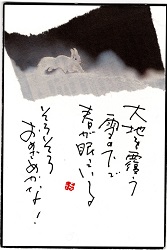 大地を覆う
雪の下で
春が眠っている
そろそろ
おめめかな!